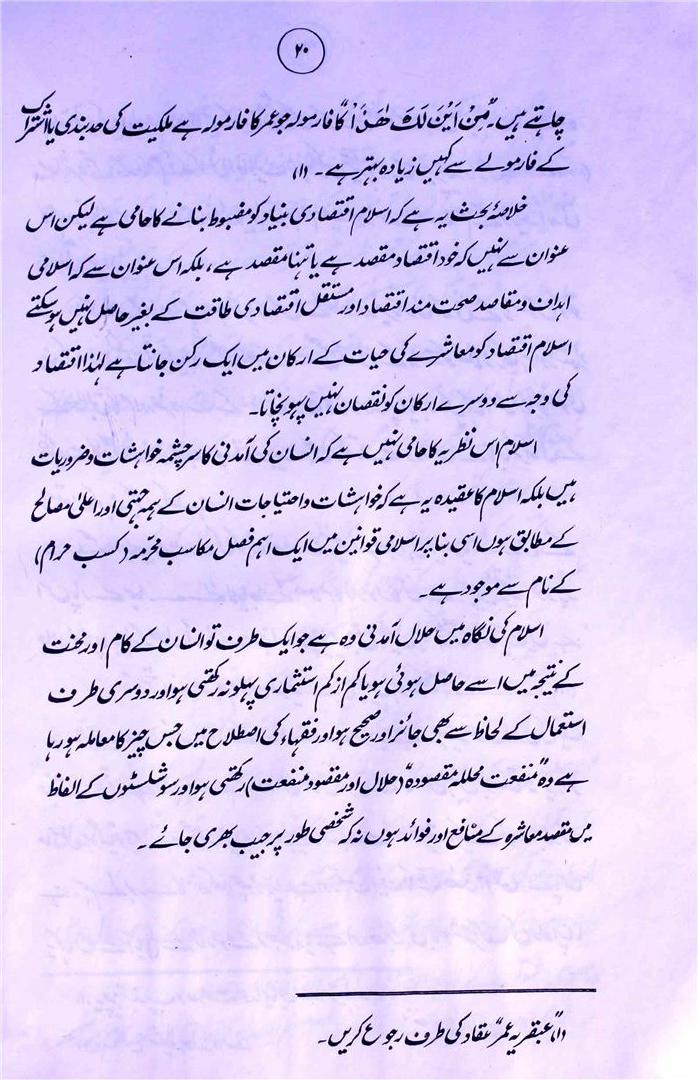 ۲۰
چاہتے ہیں۔ "مِنْ اَیْنَ لَکَ ھٰذَا" کا فارمولہ جو عمر کا فارمولہ ہے ملکیت کی حد بندی یا اشتراک
کے فارمولے سے کہیں زیادہ بہتر ہے۔ (۱)
خلاصۂ بحث یہ ہے کہ اسلام اقتصادی بنیاد کو مضبوط بنانے کا حامی ہے لیکن اس
عنوان سے نہیں کہ خود اقتصاد مقصد ہے یا تنہا مقصد ہے، بلکہ اس عنوان سے کہ اسلامی
اہداف و مقاصد صحت مند اقتصاد اور مستقل اقتصادی طاقت کے بغیر حاصل نہیں ہو سکتے
اسلام اقتصاد کو معاشرے کی حیات کے ارکان میں ایک رکن جانتا ہے لہٰذا اقتصاد
کی وجہ سے دوسرے ارکان کو نقصان نہیں پہونچاتا۔
اسلام اس نظریہ کا حامی نہیں ہے کہ انسان کی آمدنی کا سرچشمہ خواہشات و ضروریات
ہیں بلکہ اسلام کا عقیدہ یہ ہے کہ خواہشات و احتیاجات انسان کے ہمہ جہتی اور اعلیٰ مصالح
کے مطابق ہوں اسی بنا پر اسلامی قوانین میں ایک اہم فصل مکاسب محرّمہ (کسب حرام)
کے نام سے موجود ہے۔
اسلام کی نگاہ میں حلال آمدنی وہ ہے جو ایک طرف تو انسان کے کام اور محنت
کے نتیجہ میں اسے حاصل ہوئی ہو یا کم از کم استثماری پہلو نہ رکھتی ہو اور دوسری طرف
استعمال کے لحاظ سے بھی جائز اور صحیح ہو اور فقہاء کی اصطلاح میں جس چیز کا معاملہ ہو رہا
ہے وہ "منفعت محللہ مقصودہ" (حلال اور مقصود منفعت) رکھتی ہو اور سوشلسٹوں کے الفاظ
میں مقصد معاشرہ کے منافع اور فوائد ہوں نہ کہ شخصی طور پر جیب بھری جائے۔
(۱) "عبقریہ عمر" عقاد کی طرف رجوع کریں۔